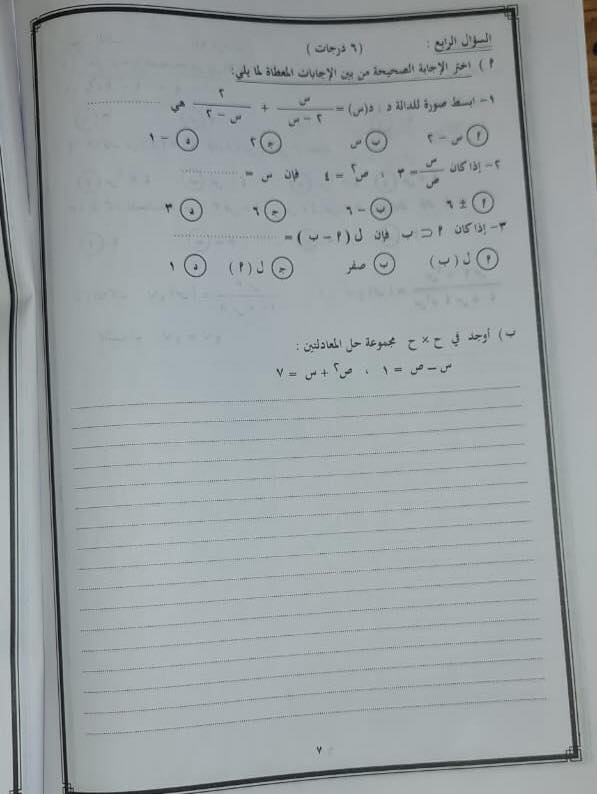 السؤال الرابع : (٦ درجات)
أ) اختر الإجابة الصحيحة من بين الإجابات المعطاة لما يلي:
١- ابسط صورة للدالة د : د(س) = س/(٢ - س) + ٢/(س - ٢) هي ..............
أ س - ٢ ب س ج ٢ د - ١
٢- إذا كان س/ص = ٣ ، ص٢ = ٤ فإن س = ..............
أ ± ٦ ب - ٦ ج ٦ د ٣
٣- إذا كان أ ⊂ ب فإن ل (أ - ب) = ..............
أ ل (ب) ب صفر ج ل (أ) د ١
ب) أوجد في ح × ح مجموعة حل المعادلتين :
س - ص = ١ ، ص٢ + س = ٧
٧